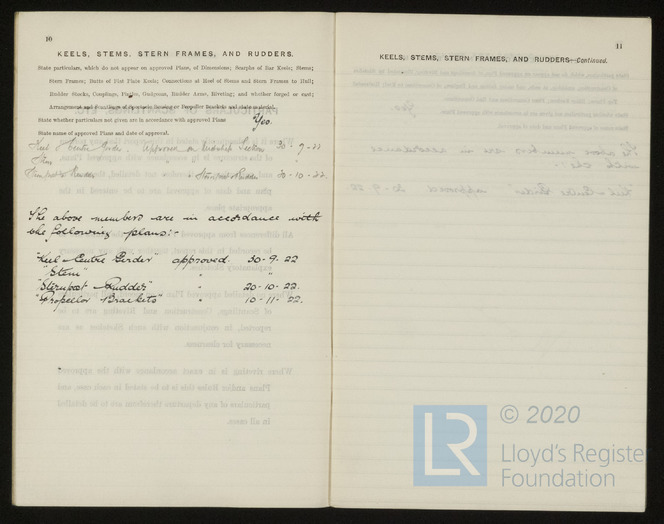 10
KEELS, STEMS, STERN FRAMES, AND RUDDERS.
State particulars, which do not appear on approved Plans, of Dimensions; Scarphs of Bar Keels; Stems;
Stern Frames; Butts of Flat Plate Keels; Connections at Heel of Stems and Stern Frames to Hull;
Rudder Stocks, Couplings, Pintles, Gudgeons, Rudder Arms, Riveting; and whether forged or cast;
Arrangement and Scantlings of Spectacle Bossing or Propeller Brackets and state material.
State whether particulars not given are in accordance with approved Plans Yes.
State name of approved Plans and date of approval.
Keel & Centre Girder. Approved on Midship Section 30-9-22
Stem "
Sternpost & Rudder Sternpost Rudder 20-10-22
The above members are in accordance with
the following plans:-
"Keel & Centre Girder" approved. 30-9-22
"Stem" " "
"Sternpost & Rudder" " 20-10-22.
"Propellor Brackets" " 10-11-22.
11
KEELS, STEMS, STERN FRAMES, AND RUDDERS—Continued.
LR
© 2020
Lloyd's Registe
Foundation